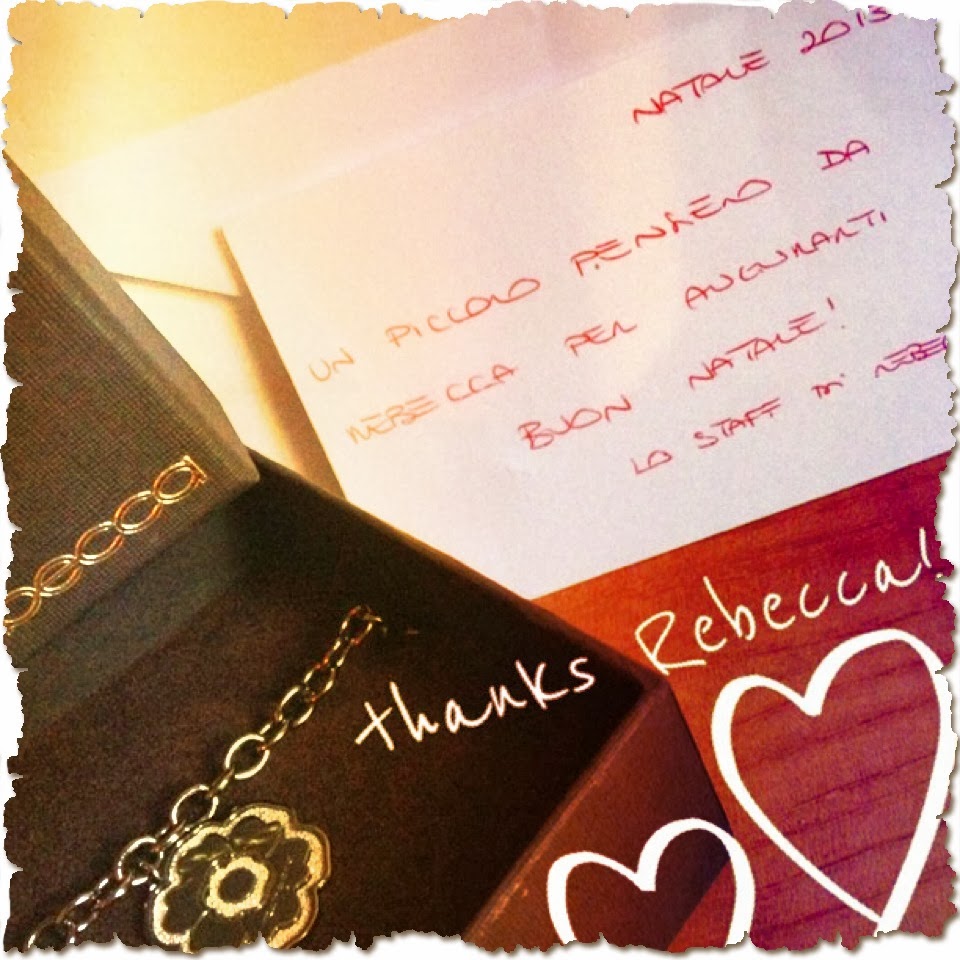 NATALE 2013
UN PICCOLO PENSIERO DA
REBECCA PER AUGURARTI
BUON NATALE!
LO STAFF DI
thanks Rebecca!